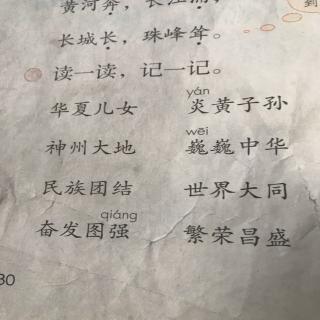 黄河奔，长江涌，
长城长，珠峰耸。
读一读，记一记。
yán
华夏儿女 炎黄子孙
wēi
神州大地 巍巍中华
民族团结 世界大同
qiáng
奋发图强 繁荣昌盛
到